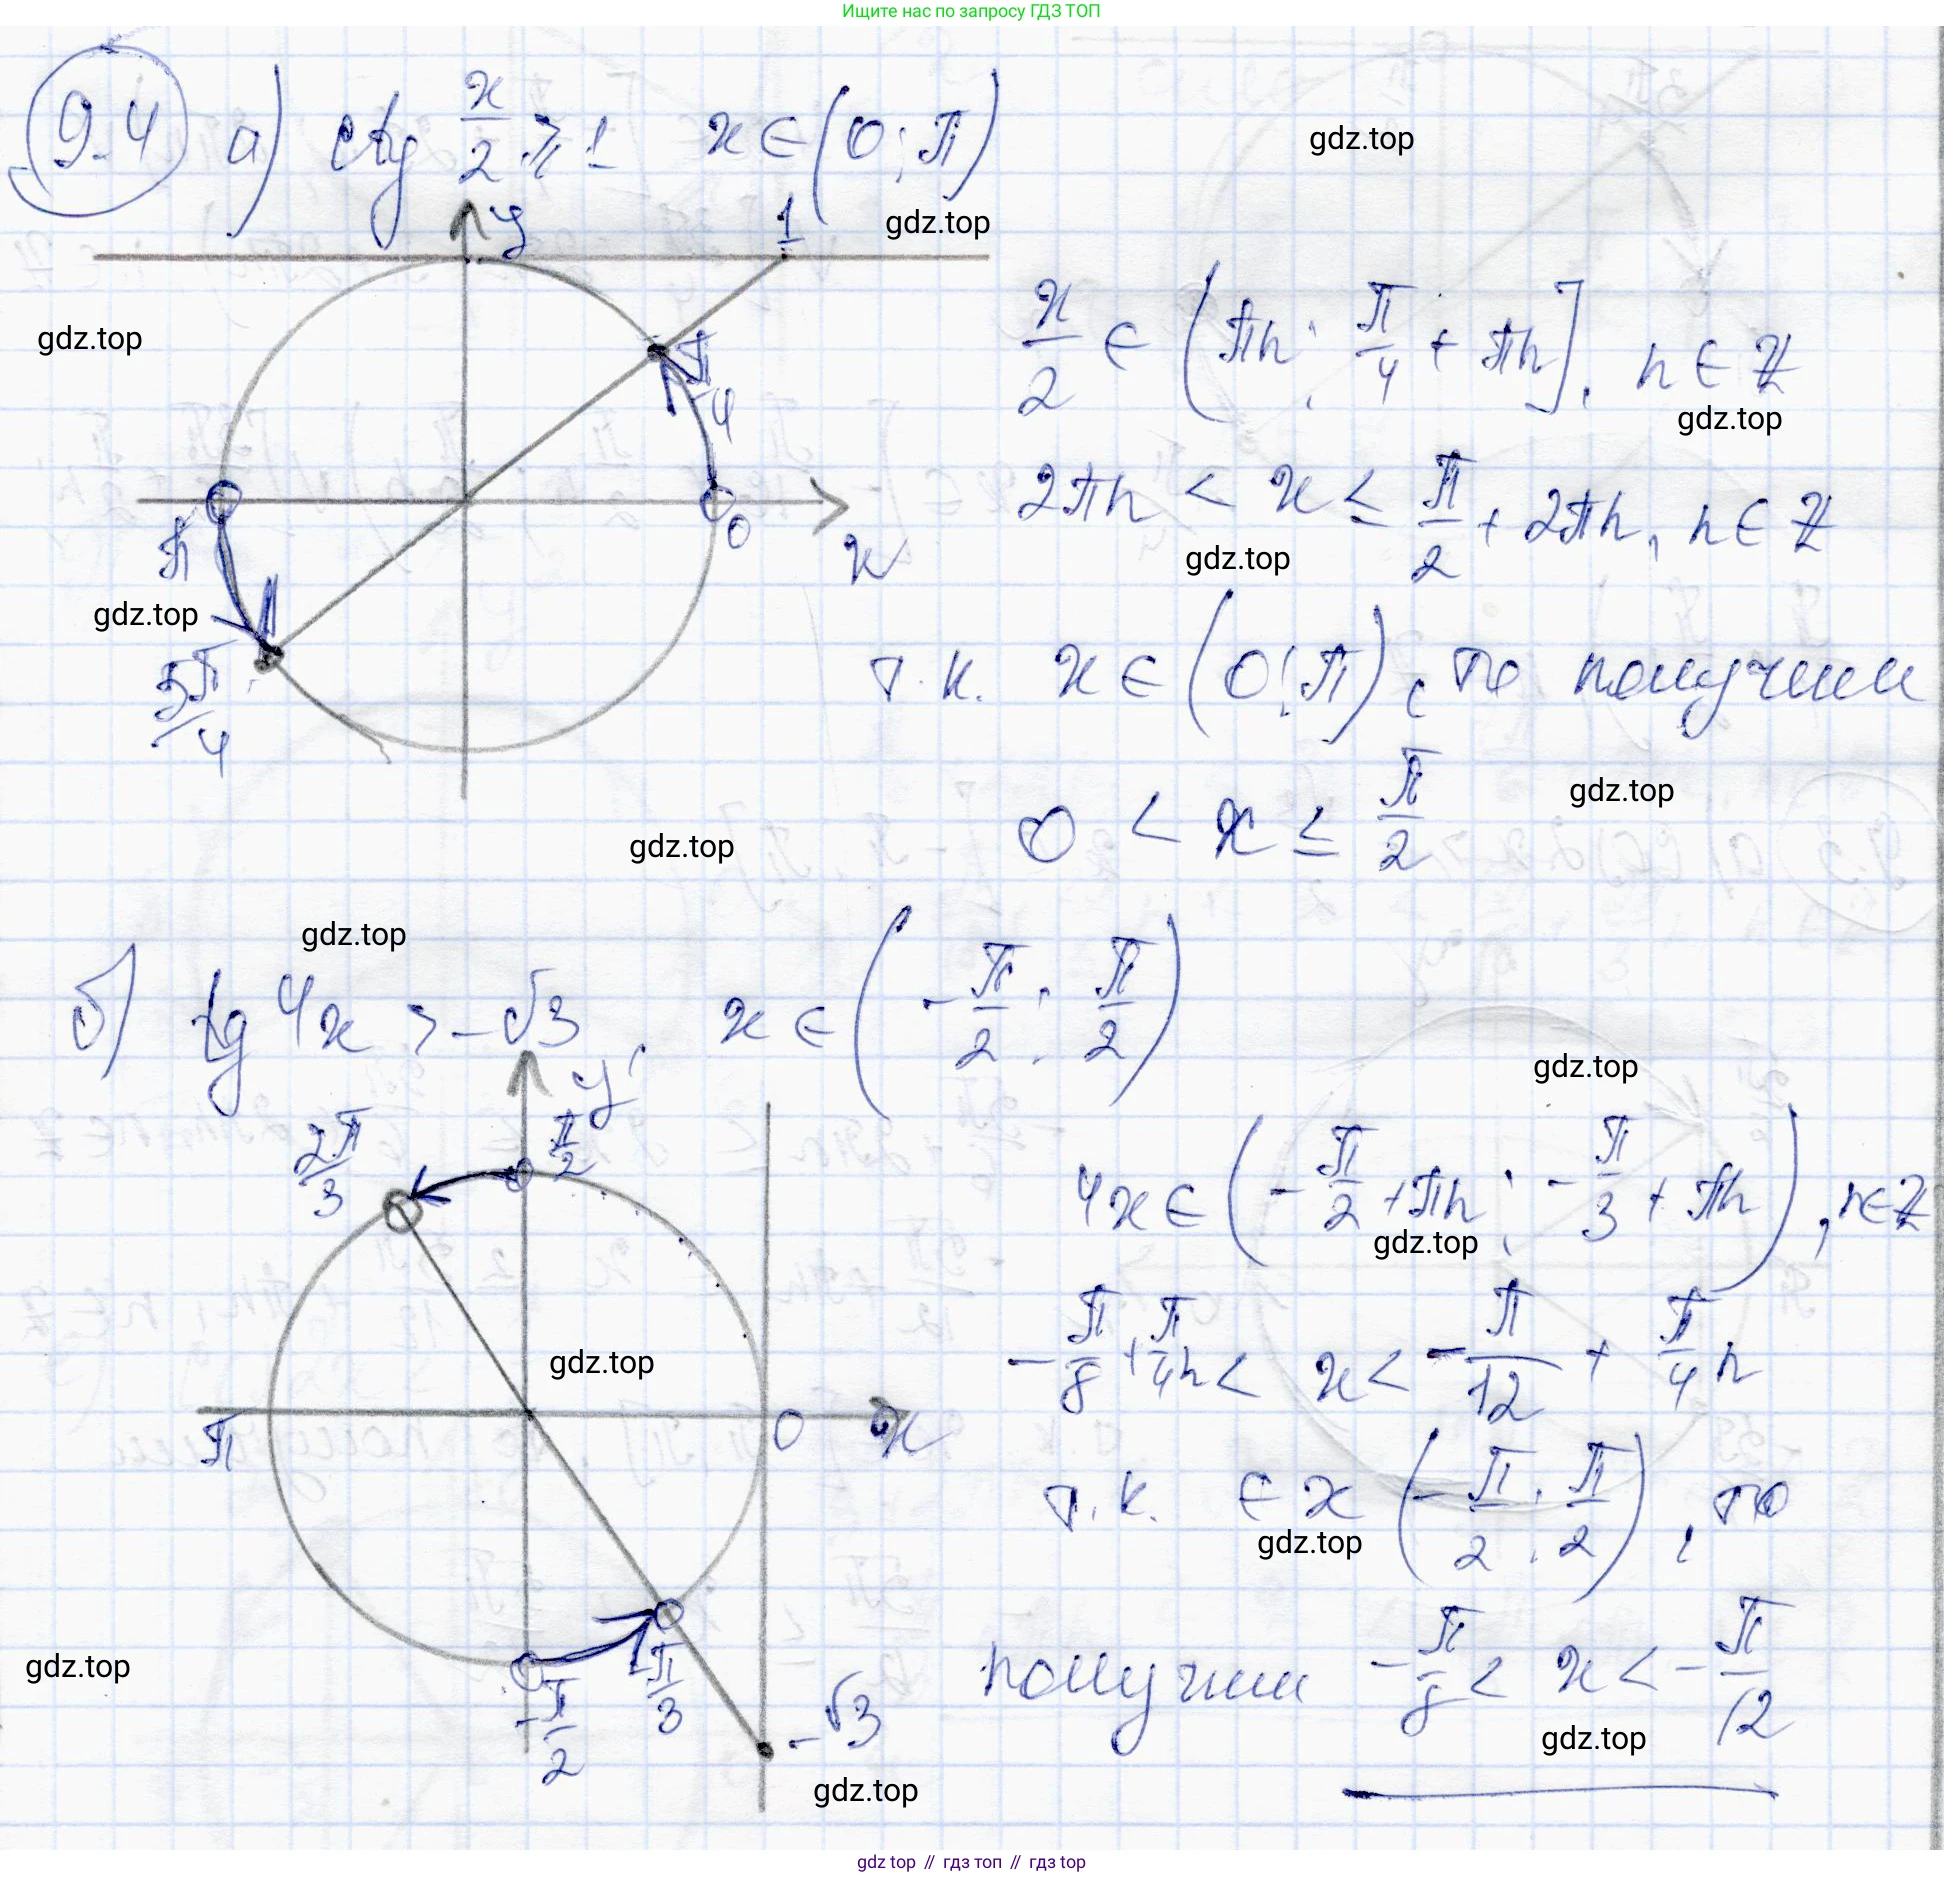 Ищите нас по запросу ГДЗ ТОП
9.4 а) ctg x/2 ≥ 1 x ∈ (0; π)
gdz.top
gdz.top
y 1
gdz.top
π/4
x/2 ∈ (πn; π/4 + πn], n ∈ Z
gdz.top
π 0 x
2πn < x ≤ π/2 + 2πn, n ∈ Z
gdz.top
gdz.top
5π/4
т.к. x ∈ (0; π), то получим
gdz.top
0 < x ≤ π/2
gdz.top
gdz.top
б) tg 4x > -√3, x ∈ (-π/2; π/2)
gdz.top
y
2π/3 π/2
4x ∈ (-π/2 + πn; -π/3 + πn), n ∈ Z
gdz.top
gdz.top
-π/8 + π/4 n < x < -π/12 + π/4 n
π 0 x
т.к. ∈ x (-π/2; π/2), то
gdz.top
gdz.top
-π/2 -π/3
-√3
получим -π/8 < x < -π/12
gdz.top
gdz.top
gdz top // гдз топ // gdz top